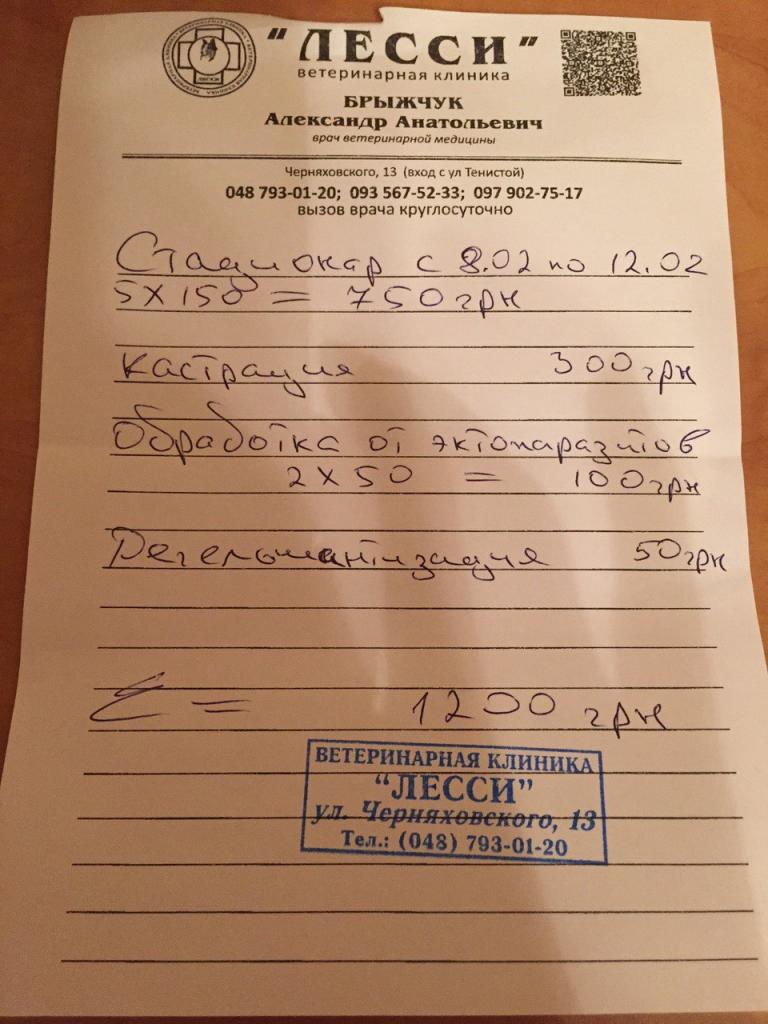 "ЛЕССИ"
ветеринарная клиника
БРЫЖЧУК
Александр Анатольевич
врач ветеринарной медицины
Черняховского, 13 (вход с ул Тенистой)
048 793-01-20; 093 567-52-33; 097 902-75-17
вызов врача круглосуточно
Стационар с 8.02 по 12.02
5 X 150 = 750 грн
кастрация 300 грн
Обработка от эктопаразитов
2 X 50 = 100 грн
Дегельминтизация 50 грн
Σ = 1200 грн
ВЕТЕРИНАРНАЯ КЛИНИКА
"ЛЕССИ"
ул. Черняховского, 13
Тел.: (048) 793-01-20